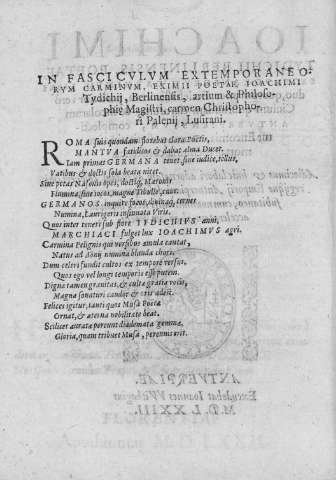 IN FASCICVLVM EXTEMPORANEO-
RVM CARMINVM, EXIMII POETAE IOACHIMI
Tydichij, Berlinensis, artium & Philoso-
phiæ Magistri, carmen Christopho-
ri Palenij, Lusitani.
ROMA suis quondam florebat clara Poetis,
MANTVA fatidicos & dabat alma Duces.
Iam primas GERMANA tenet sine iudice, tellus,
Vatibus & doctis sola beata nitet.
Siue petas Nasonis opes, doctiq; Maronis
Flumina, siue iocos, magne Tibulle, tuos:
GERMANOS inquire focos, diuinaq; cernes
Numina, Laurigeris insinuata Viris.
Quos inter teneris sub flore TYDICHIVS annis,
MARCHIACI fulget lux IOACHIMVS agri.
Carmina Peligni qui versibus æmula cantat,
Natus ad Aonij numina blanda chori.
Dum celeri fundit cultos ex tempore versus,
Quos ego vel longi temporis esse putem.
Digna tamen grauitas, & culta gratia vocis,
Magna sonaturi candor & oris adest.
Felices igitur, tanti quos Musa Poetæ
Ornat, & æterna nobilitate beat.
Scilicet aurata pereunt diademata gemmæ,
Gloria, quam tribuet Musa, perennis erit.